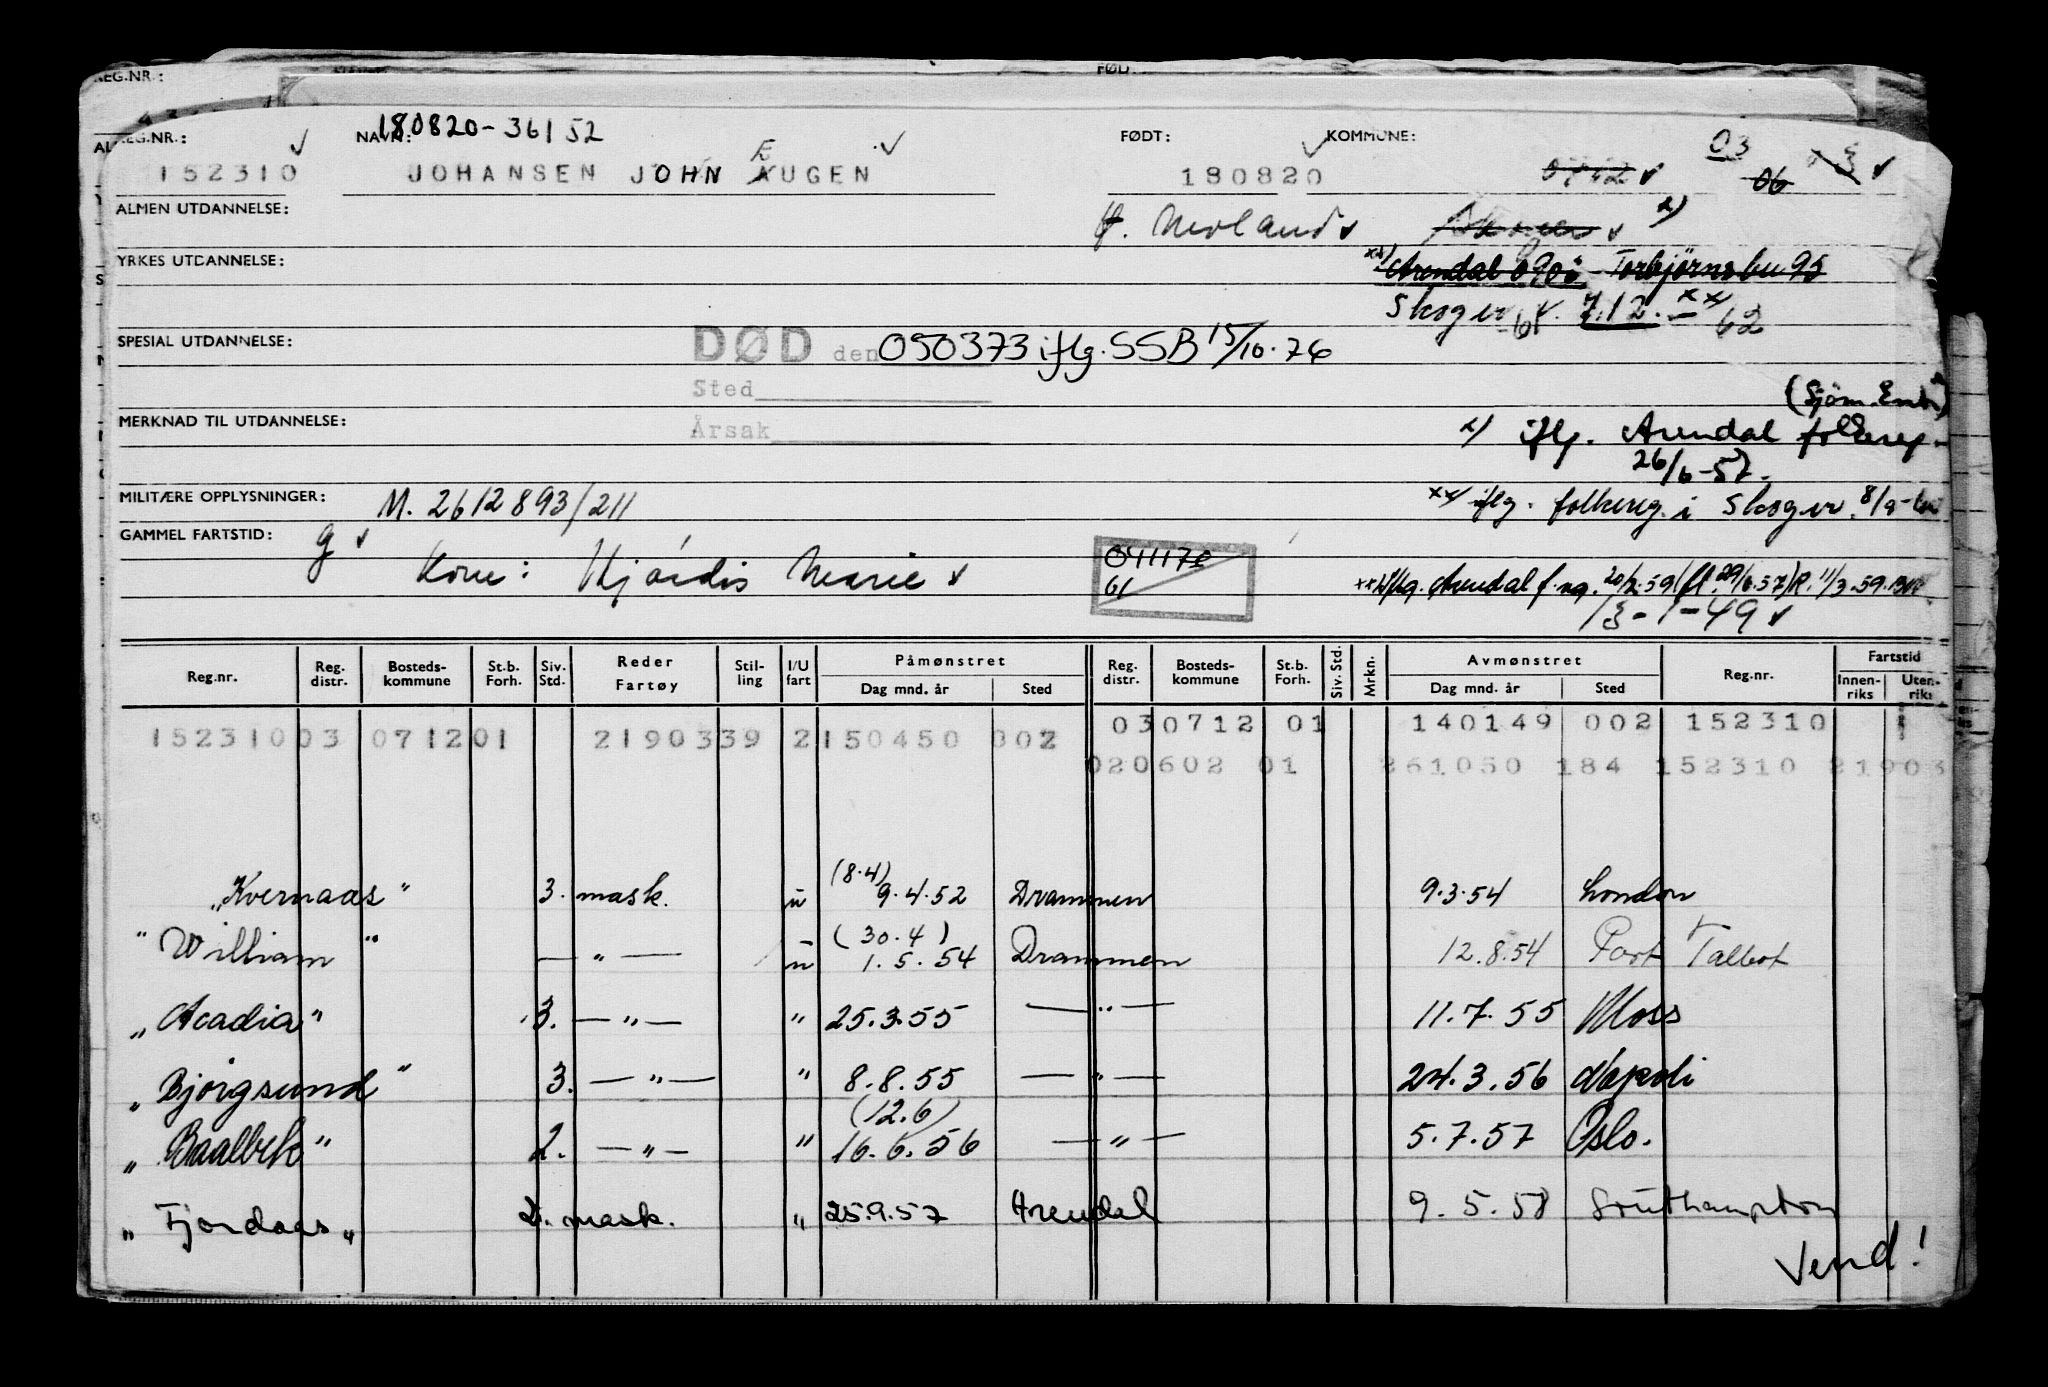 REG.NR.:
FØD
REG.NR.: NAVN: 180820-36152 FØDT: KOMMUNE: 03
152310 JOHANSEN JOHN EUGEN 180820 06
ALMEN UTDANNELSE: H. Moland x)
YRKES UTDANNELSE: xx) Arendal 0903 Torbjørnsbu 95
Skoger 7.12. xxx) 62
SPESIAL UTDANNELSE: DØD den 050373 iflg. SSB 15/10.76
Sted
(Sjøm.
MERKNAD TIL UTDANNELSE: Årsak x) iflg. Arendal folkereg.
26/6-57.
MILITÆRE OPPLYSNINGER: M. 2612893/211 xx) iflg. folkereg. i Skoger
GAMMEL FARTSTID: g
Kone: Hjørdis Marie 041170
61 iflg. Arendal f. reg. 20/2.59 (fl. 29/6.57) R. 11/3.59.
13-1-49
Reg.nr. Reg. distr. Bosteds-kommune St.b. Forh. Siv. Std. Reder Fartøy Stil-ling I/U fart Påmønstret Dag mnd. år Sted Reg. distr. Bosteds-kommune St.b. Forh. Siv. Std. Mrkn. Avmønstret Dag mnd. år Sted Reg.nr. Fartstid Innen-riks Uten-riks
030712 01 140149 002 152310
152310 03 071201 2190339 2 150450 302
020602 01 261050 184 152310 21903
„Kvernaas" 3. mask. u (8.4) 9.4.52 Drammen 9.3.54 London
"William" — „ — u (30.4) 1.5.54 Drammen 12.8.54 Port Talbot
„Acadia" 3. — „ — " 25.3.55 — „ — 11.7.55 Moss
„Bjørgsund" 3. — „ — " 8.8.55 — „ — 24.3.56 Napoli
„Baalbek" 2. — „ — " (12.6) 16.6.56 — „ — 5.7.57 Oslo.
„Fjordaas„ 2. mask. „ 25.9.57 Arendal 9.5.58 Southampton
Vend!